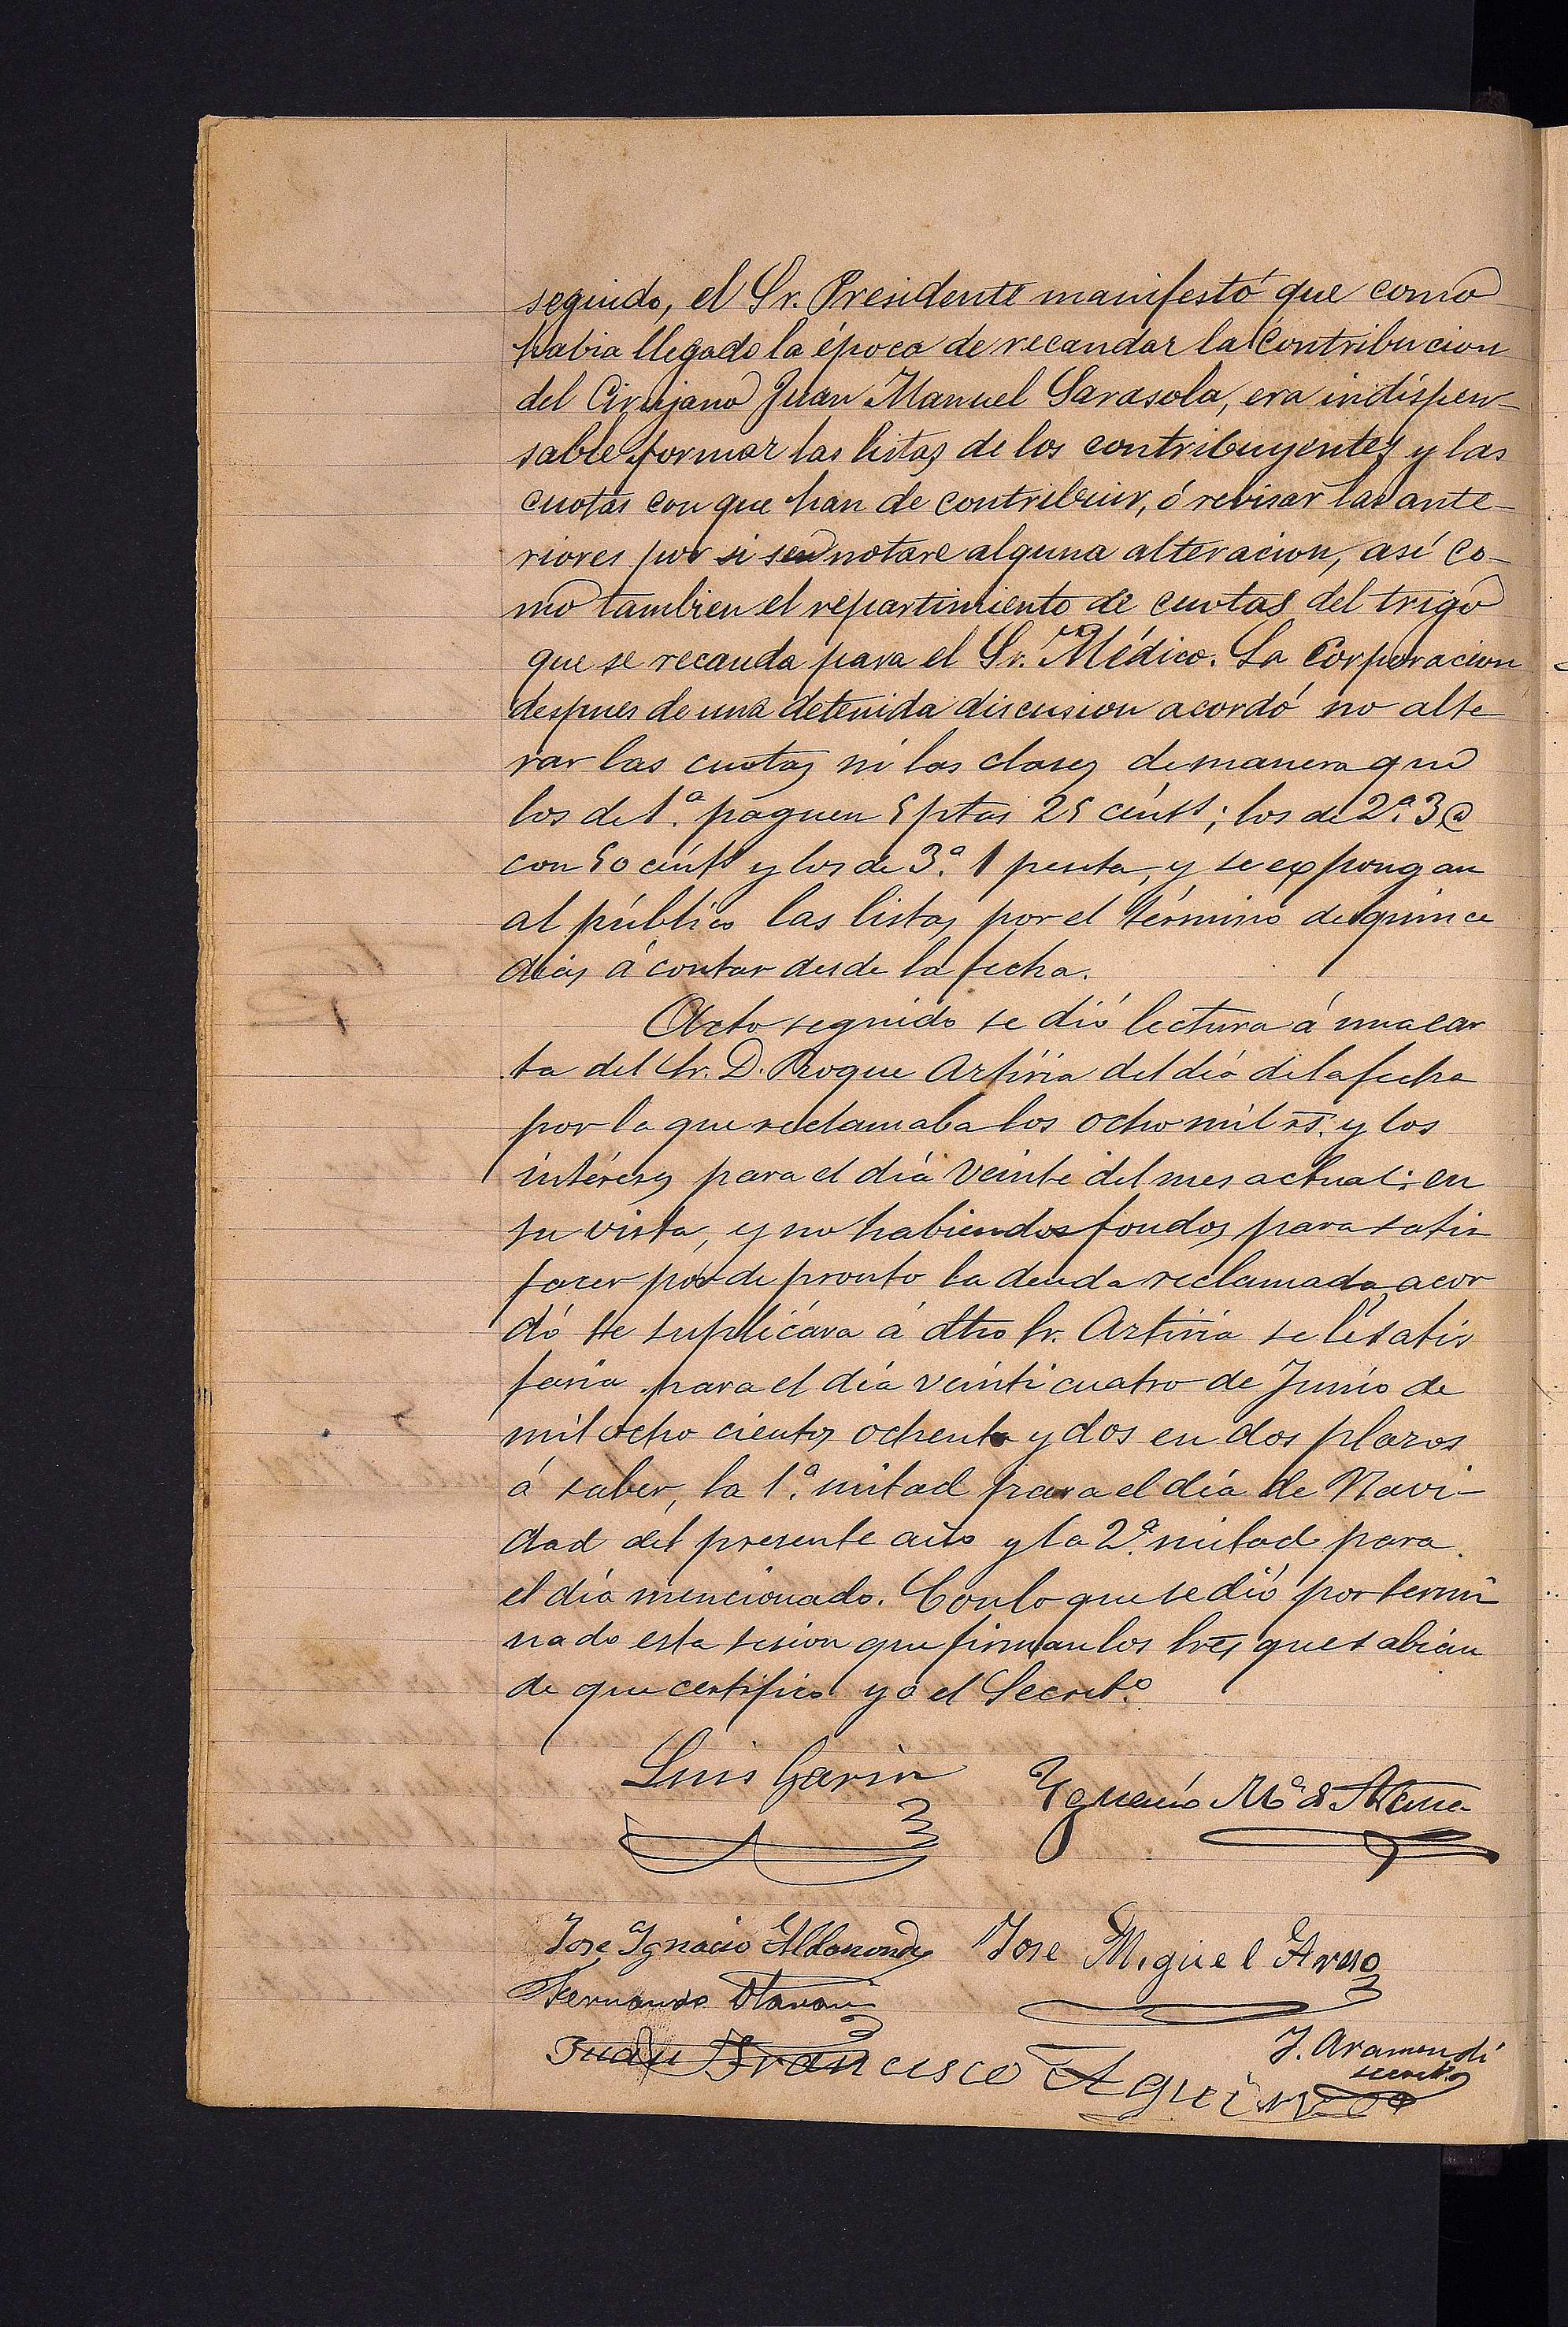 seguido, el Sr. Presidente manifestó que como
habia llegado la época de recaudar la Contribucion
del Cirujano Juan Manuel Sarasola, era indispen-
sable formar las listas de los contribuyentes y las
cuotas con que han de contribuir, ó revisar las ante-
riores por si se notare alguna alteracion, asi co-
mo tambien el repartimiento de cuotas del trigo
que se recauda para el Sr. Médico. La Corporacion
despues de una detenida discusion acordó no alte
rar las cuotas ni las clases de manera que
los de 1.ª paguen 5 ptas 25 cénts; los de 2.ª 3
con 50 cénts y los de 3.ª 1 peseta, y se expongan
al público las listas por el término de quince
dias á contar desde la fecha.
Acto seguido se dió lectura á una car
ta del Sr. D. Roque Artiria del dia de la fecha
por la que reclamaba los ocho mil rs. y los
intéreses para el dia veinte del mes actual; en
su vista, y no habiendo fondos para satis
facer por de pronto la deuda reclamada, acor
dó se suplicára á dho Sr. Artiria se le satis
faria para el dia veinticuatro de Junio de
mil ocho cientos ochenta y dos en dos plazos
á saber, la 1.ª mitad para el dia de Navi-
dad del presente año y la 2.ª mitad para
el dia mencionado. Con lo que se dió por termi
nado esta sesion que firman los Sres que sabian
de que certifico yo el Secret.º
Luis Garin Ygnacio M.ª de
Jose Ygnacio Jose Miguel
Fernando
J. Aramendi
secret.º
Juan Francisco Aguirre